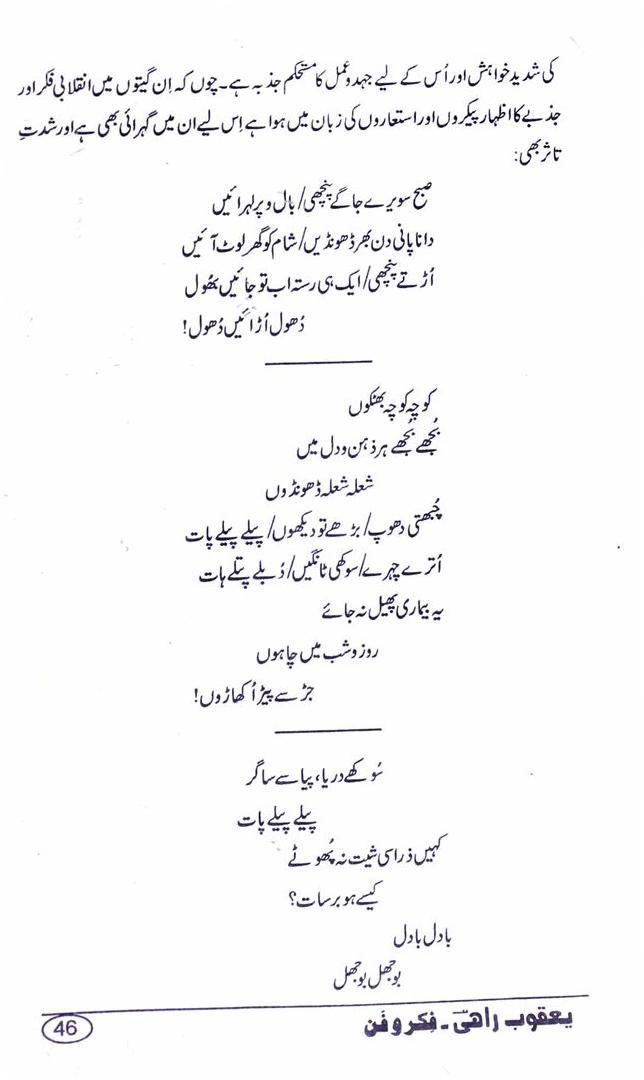 کی شدید خواہش اور اُس کے لیے جہد و عمل کا مستحکم جذبہ ہے۔ چوں کہ اِن گیتوں میں انقلابی فکر اور
جذبے کا اظہار پیکروں اور استعاروں کی زبان میں ہوا ہے اِس لیے ان میں گہرائی بھی ہے اور شدتِ
تاثر بھی:
صبح سویرے جاگے پنچھی/ بال و پر لہرائیں
دانا پانی دن بھر ڈھونڈیں/ شام کو گھر لوٹ آئیں
اُڑتے پنچھی/ ایک ہی رستہ اب تو جائیں بھُول
دُھول اُڑائیں دُھول!
کوچہ کوچہ بھٹکوں
بُجھے بُجھے ہر ذہن و دل میں
شعلہ شعلہ ڈھونڈوں
چُبھتی دھوپ/ بڑھے تو دیکھوں/ پیلے پیلے پات
اُترے چہرے/ سوکھی ٹانگیں/ دُبلے پتلے ہات
یہ بیماری پھیل نہ جائے
روز و شب میں چاہوں
جڑ سے پیڑ اُکھاڑوں!
سُوکھے دریا، پیاسے ساگر
پیلے پیلے پات
کہیں ذرا سی شیت نہ پھُوٹے
کیسے ہو برسات؟
بادل بادل
بوجھل بوجھل
یعقوب راھیؔ ۔ فِکر و فَن
46